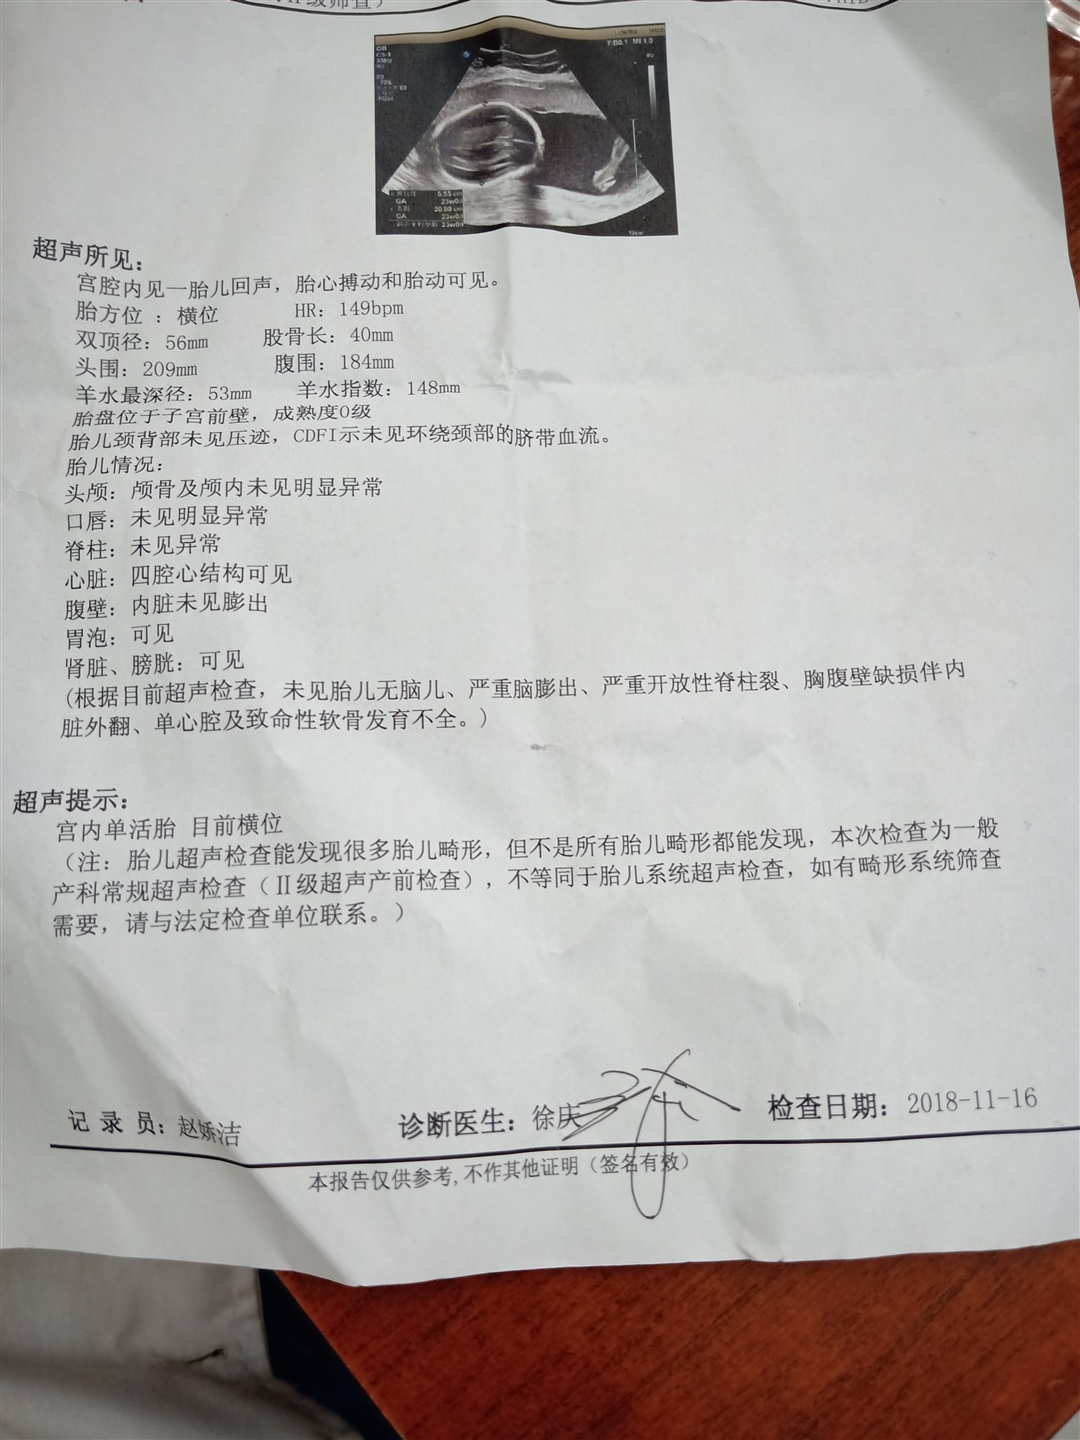 级筛查）
TIb0.1 MI 1.0
5.55 cm
GA 23w0d
20.90 cm
GA 23w0d
超声所见：
宫腔内见一胎儿回声，胎心搏动和胎动可见。
胎方位 ：横位 HR：149bpm
双顶径：56mm 股骨长：40mm
头围：209mm 腹围：184mm
羊水最深径：53mm 羊水指数：148mm
胎盘位于子宫前壁，成熟度0级
胎儿颈背部未见压迹，CDFI示未见环绕颈部的脐带血流。
胎儿情况：
头颅：颅骨及颅内未见明显异常
口唇：未见明显异常
脊柱：未见异常
心脏：四腔心结构可见
腹壁：内脏未见膨出
胃泡：可见
肾脏、膀胱：可见
(根据目前超声检查，未见胎儿无脑儿、严重脑膨出、严重开放性脊柱裂、胸腹壁缺损伴内
脏外翻、单心腔及致命性软骨发育不全。)
超声提示：
宫内单活胎 目前横位
（注：胎儿超声检查能发现很多胎儿畸形，但不是所有胎儿畸形都能发现，本次检查为一般
产科常规超声检查（Ⅱ级超声产前检查），不等同于胎儿系统超声检查，如有畸形系统筛查
需要，请与法定检查单位联系。）
记 录 员：赵娇洁 诊断医生：徐庆 检查日期：2018-11-16
本报告仅供参考,不作其他证明（签名有效）